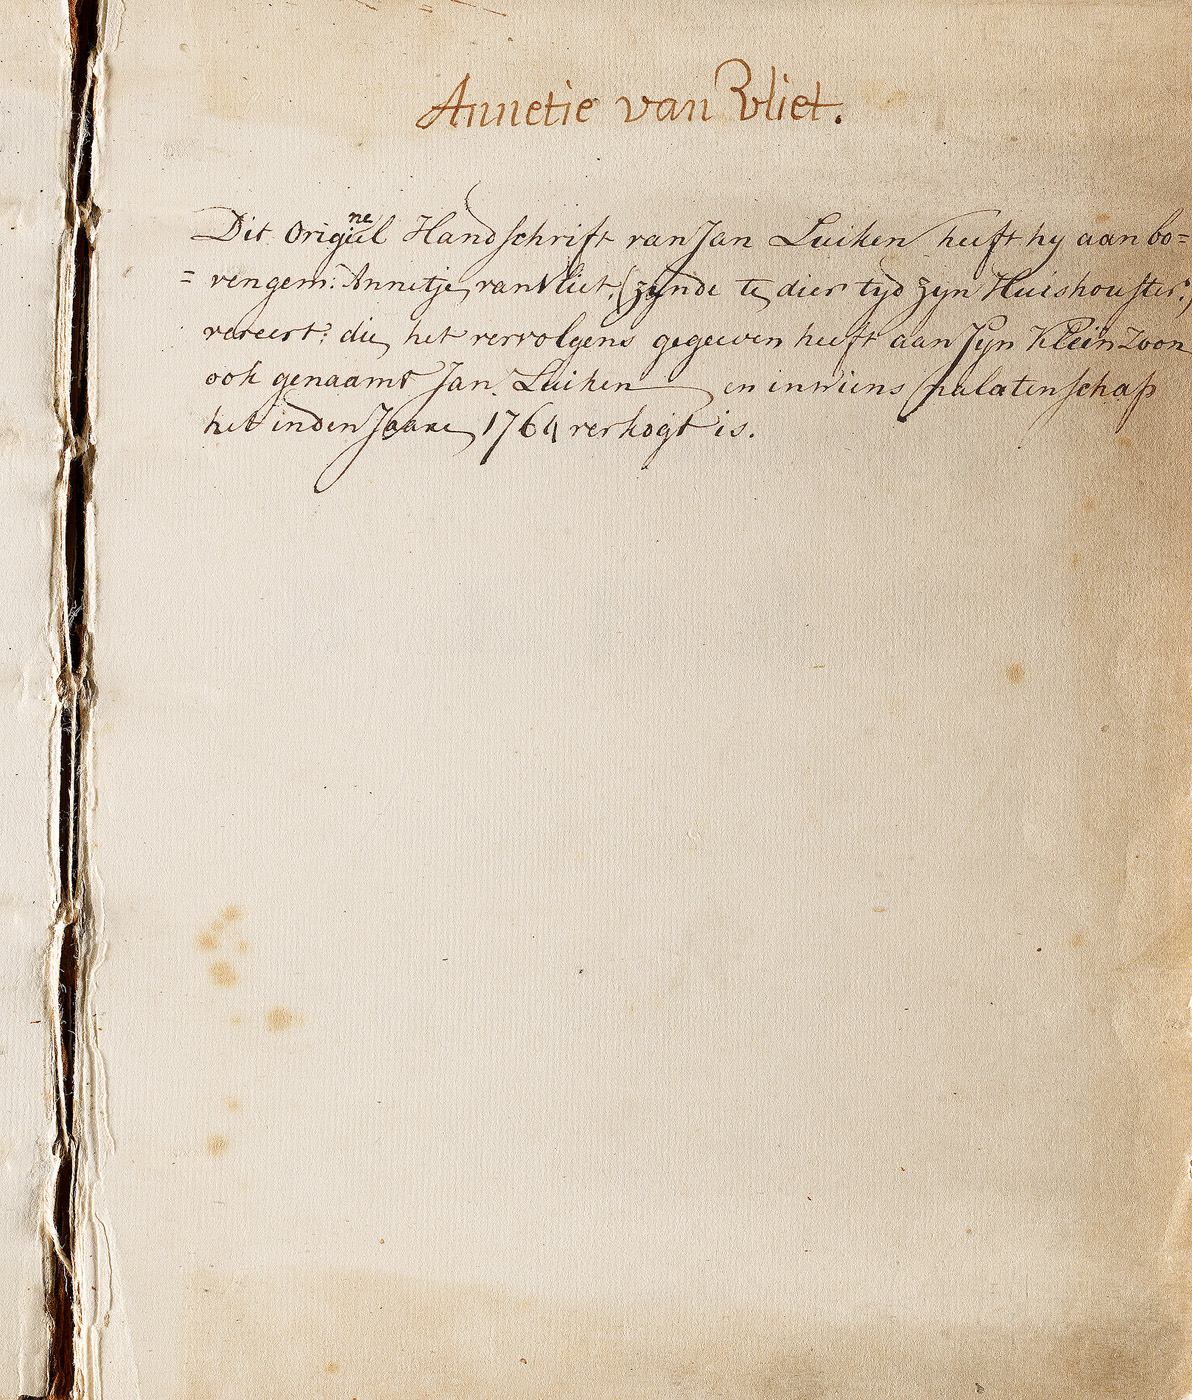 Annetie van Vliet.
Dit Origineel Handschrift van Jan Luiken heeft hy aan bo=
=vengem: Annetje van Vliet, (zynde te dier tyd zyn Huishoufter)
vereert: die het vervolgens gegeeven heeft aan zyn Klein Zoon
ook genaamt Jan Luiken en in wiens nalatenschap
het in den Jaare 1764 verkogt is.